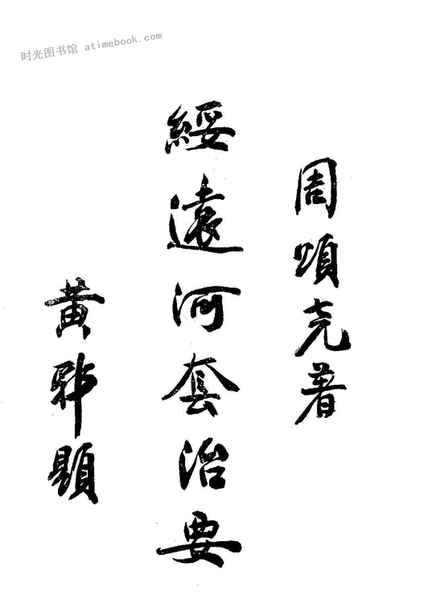 时光图书馆 atimebook.com
周頌尧著
綏遠河套治要
黄郛題